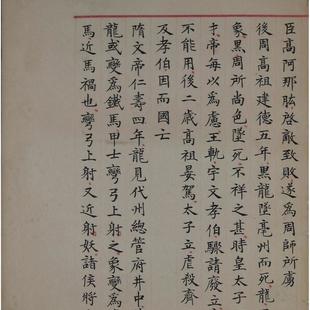 臣高阿那肱啟敵致敗遂為周師所虜
後周高祖建德五年黑龍墜亳州而死龍
象黑周所尚色墜死不祥之甚時皇太子
才帝每以為慮王軌宇文孝伯驟請廢立
不能用後二歲高祖晏駕太子立虐殺齊
及孝伯因而國亡
隋文帝仁壽四年龍見代州總管府井中
龍或變為鐵馬甲士彎弓上射之象變為
馬近馬禍也彎弓上射又近射妖諸侯將